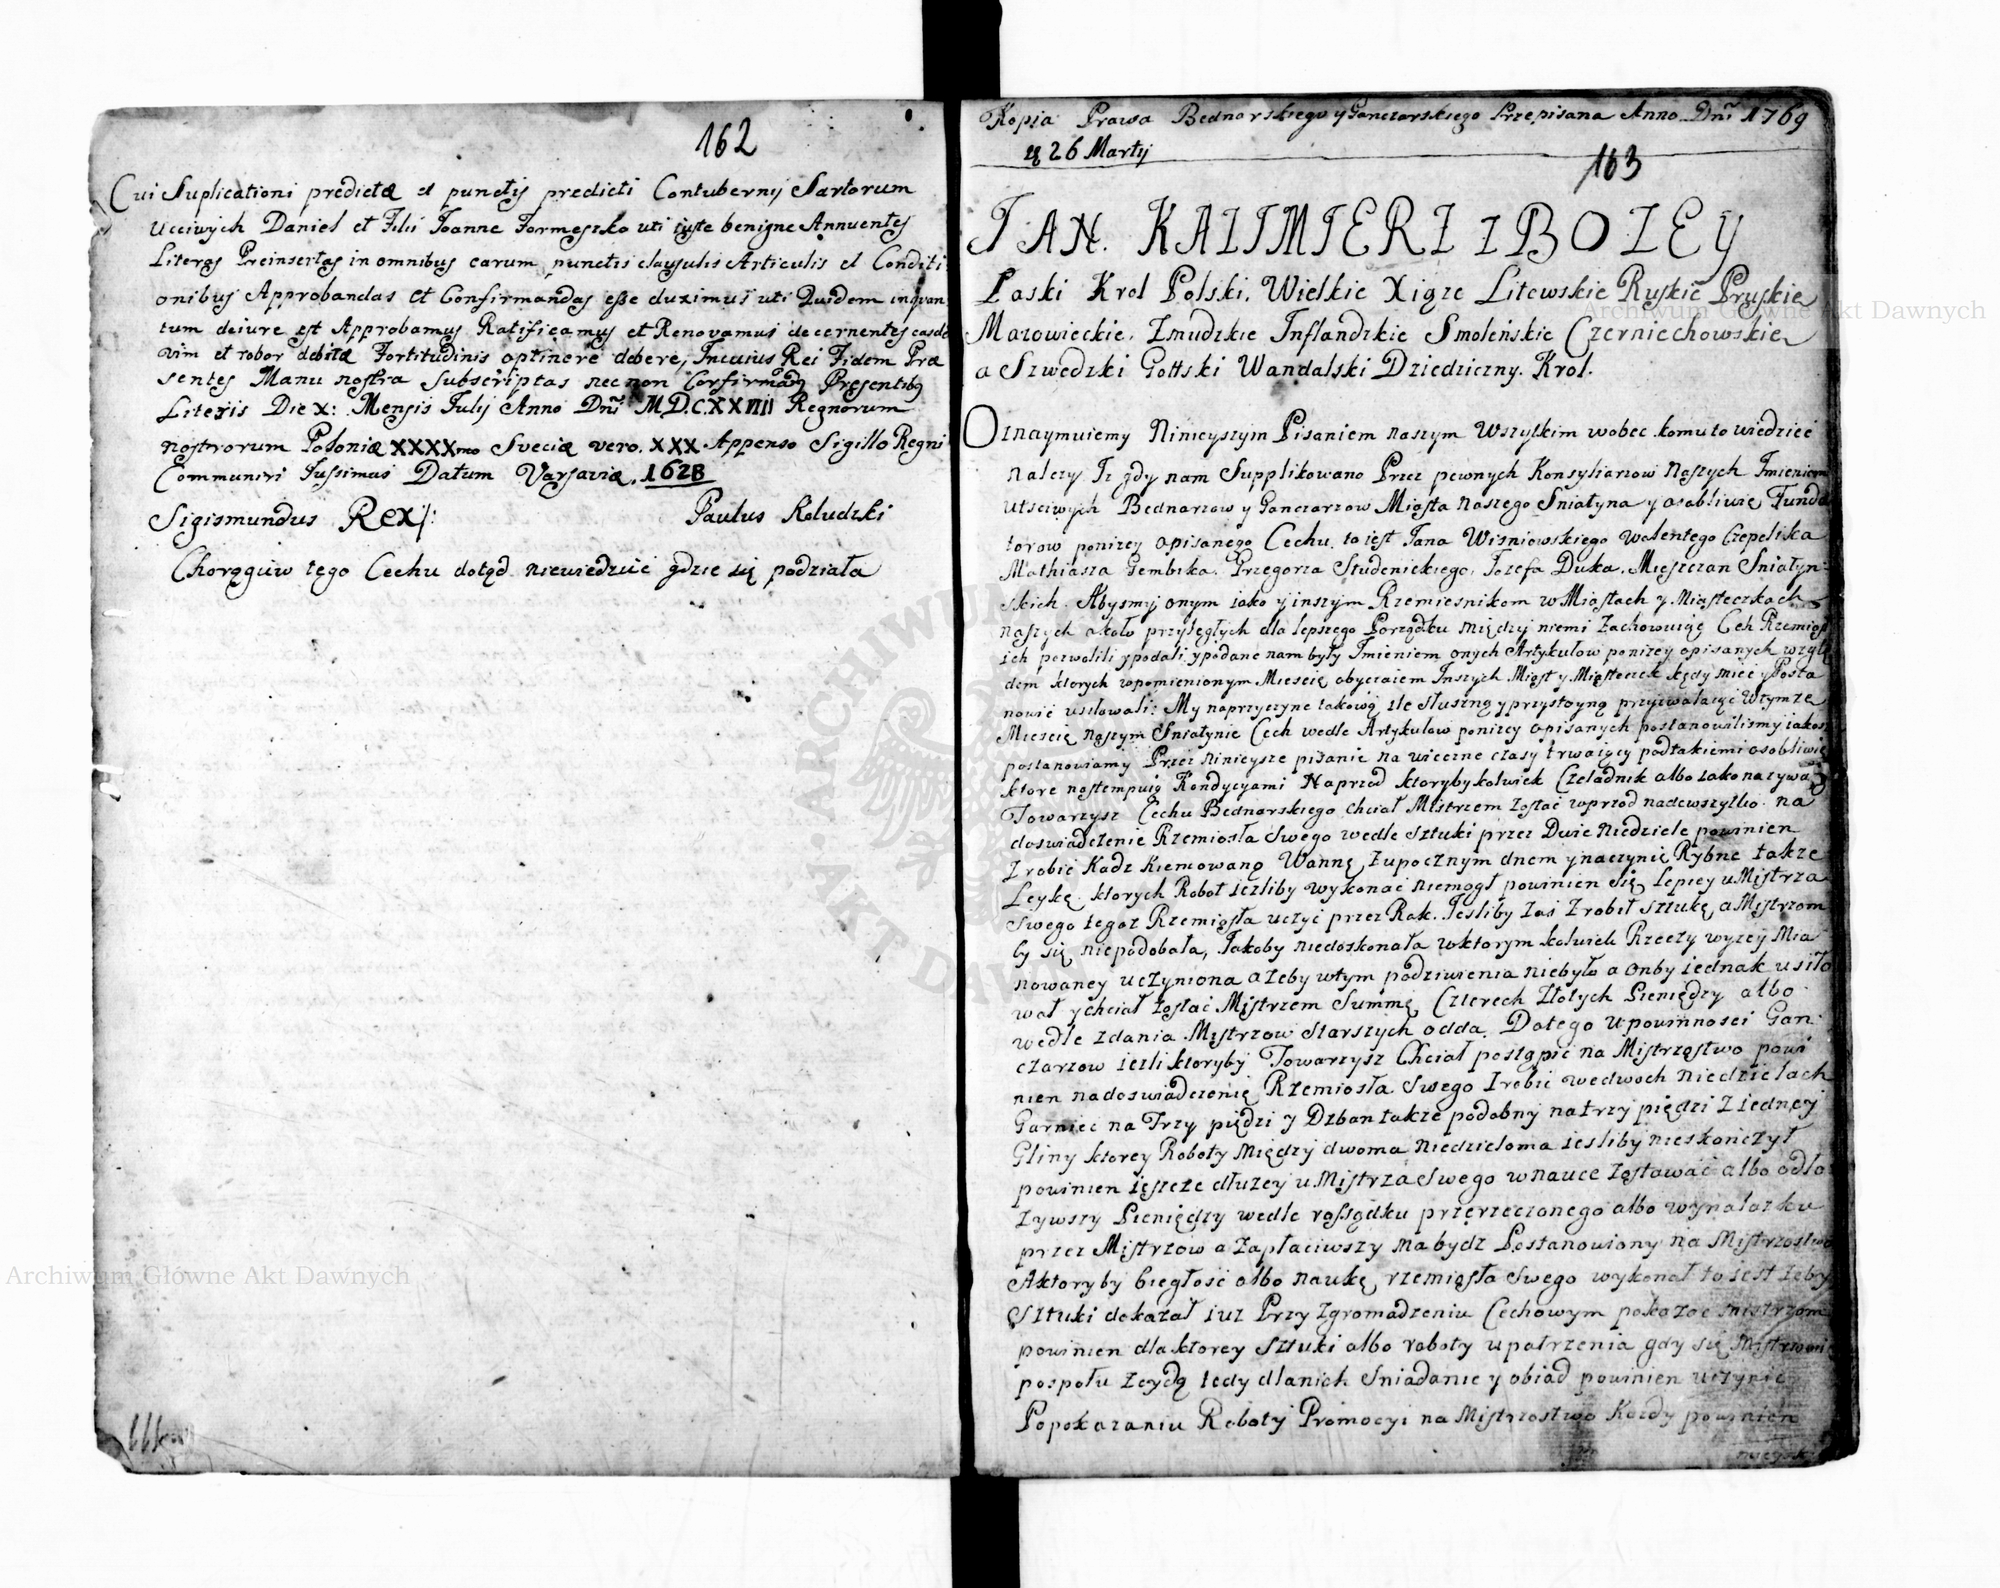 162
Cui Suplicationi predictæ et punctis predicti Contubernij Sartorum
Ucciwych Daniel et Filii Joanne Formeszko uti iuste benigne Annuentes
Literas Preinsertas in omnibus earum punctis clausulis Articulis et Conditi
onibus Approbandas et Confirmandas esse duximus uti Quidem inquan
tum deiure est Approbamus Ratificamus et Renovamus decernentes easde
vim et robor debitæ Fortitudinis optinere debere, Incuius Rei Fidem Præ
sentes Manu nostra Subscriptas nec non Presentibus
Literis Die X: Mensis Julij Anno Dni M.D.C.XXVIII Regnorum
nostrorum Poloniæ XXXXmo Sveciæ vero. XXX. Appenso Sigillo Regni
Communiri Jussimus Datum Varsaviæ. 1628
Sigismundus Rex/: Paulus Koludzki
Chorągwiw tego Cechu dotąd niewiedzieć gdzie się podziała
Kopia Prawa Bednarskiego y Ganczarskiego Przepisana Anno Dni 1769
26 Martij
163
JAN. KAZIMIERZ z BOZEY
Łaski Krol Polski, Wielkie Xiąże Litewskie Ruskie Pruskie
Mazowieckie, Zmudzkie Inflandzkie Smoleńskie Czerniechowskie
a Szwedzki Gottski Wandalski Dziedziczny. Krol.
Oznaymuiemy Ninieyszym Pisaniem naszym Wszystkim wobec komu to wiedzieć
należy Iż gdy nam Supplikowano Przez pewnych Konsyliarzow Naszych Imieniem
utsciwych Bednarzow y Ganczarzow Miasta naszego Sniatyna y osobliwie Funda
torow poniżey opisanego Cechu. to iest Jana Wisniowskiego Walentego Czepelika
Mathiasza Gembika. Grzegorza Studenickiego, Jozefa Duka. Mieszczan Sniatyn:
skich. Abysmy onym iako y inszym Rzemiesnikom w Miastach y Miasteczkach
naszych około przyległych dla lepszego Porządku między niemi Zachowuiąc Ceh Rzemiosł
ich pozwolili y podali y podane nam były Imieniem onych Artykulow poniżey opisanych wzglę
dem ktorych wpomienionym Miescie obyczaiem Inszych Miast y Miasteczek kędy mieć y Posta
nowić usiłowali: My na przyczynę takową ile słuszną y przystoyną przyzwalaiąc Wtymże
Miescie naszym Sniatynie Cech wedle Artykulow poniżey opisanych postanowiliśmy iakoż
postanowiamy Przez ninieysze pisanie na wieczne czasy trwaiący pod takiemi osobliwie
ktore nastempuią Kondycyami Naprzod ktorybykolwiek Czeladnik albo iako nazywa
Towarzysz Cechu Bednarskiego chciał Mistrzem zostać wprzod nadewszystko na
doswiadczenie Rzemiosła Swego wedle sztuki przez Dwie niedziele powinien
Zrobić Kadz Kiernowaną Wannę, zupocznym dnem y naczynie Rybne takze
Leykę. ktorych Robot ieżliby wykonać niemogł powinien się lepiey u Mistrza
Swego tegoż Rzemiosła uczyć przez Rok. Jesliby zas Zrobił sztukę a Mistrzom
by się niepodobała, Jakoby niedoskonała wktorym kolwiek Rzeczy wyzey Mia
nowaney uczyniona azeby wtym podziwienia niebyło a onby iednak usiło
wał y chciał zostać Mistrzem Summę Czterech Złotych Pieniędzy albo
wedle zdania Mistrzow Starszych odda. Dotego u powinnosci Gan
czarzow iezli ktoryby Towarzysz Chciał postąpić na Mistrzostwo powi
nien na doswiadczenie Rzemiosła Swego Zrobić we dwoch niedzielach
Garniec na Trzy piędzi y Dzban takze podobny na trzy piędzi z iedney
Gliny ktorey Roboty Między dwoma niedzieloma iesliby nieskończył
powinien ieszcze dłużey u Mistrza Swego w nauce zostawać albo odło
żywszy Pieniędzy wedle rossądku przerzeczonego albo wynalazku
przez Mistrzow a zapłaciwszy ma bydz Postanowiony na Mistrzostwo
A ktoryby biegłość albo naukę rzemiosła Swego wykonał to iest zeby
Sztuki dokazał iuz Przy zgromadzeniu Cechowym pokazać mistrzom
powinien dla ktorey sztuki albo roboty upatrzenia gdy się Mistrzowie
pospołu zeydą tedy dla nich Sniadanie y obiad powinien uczynić
Po pokazaniu Roboty Promocyi na Mistrzostwo Kazdy powinien